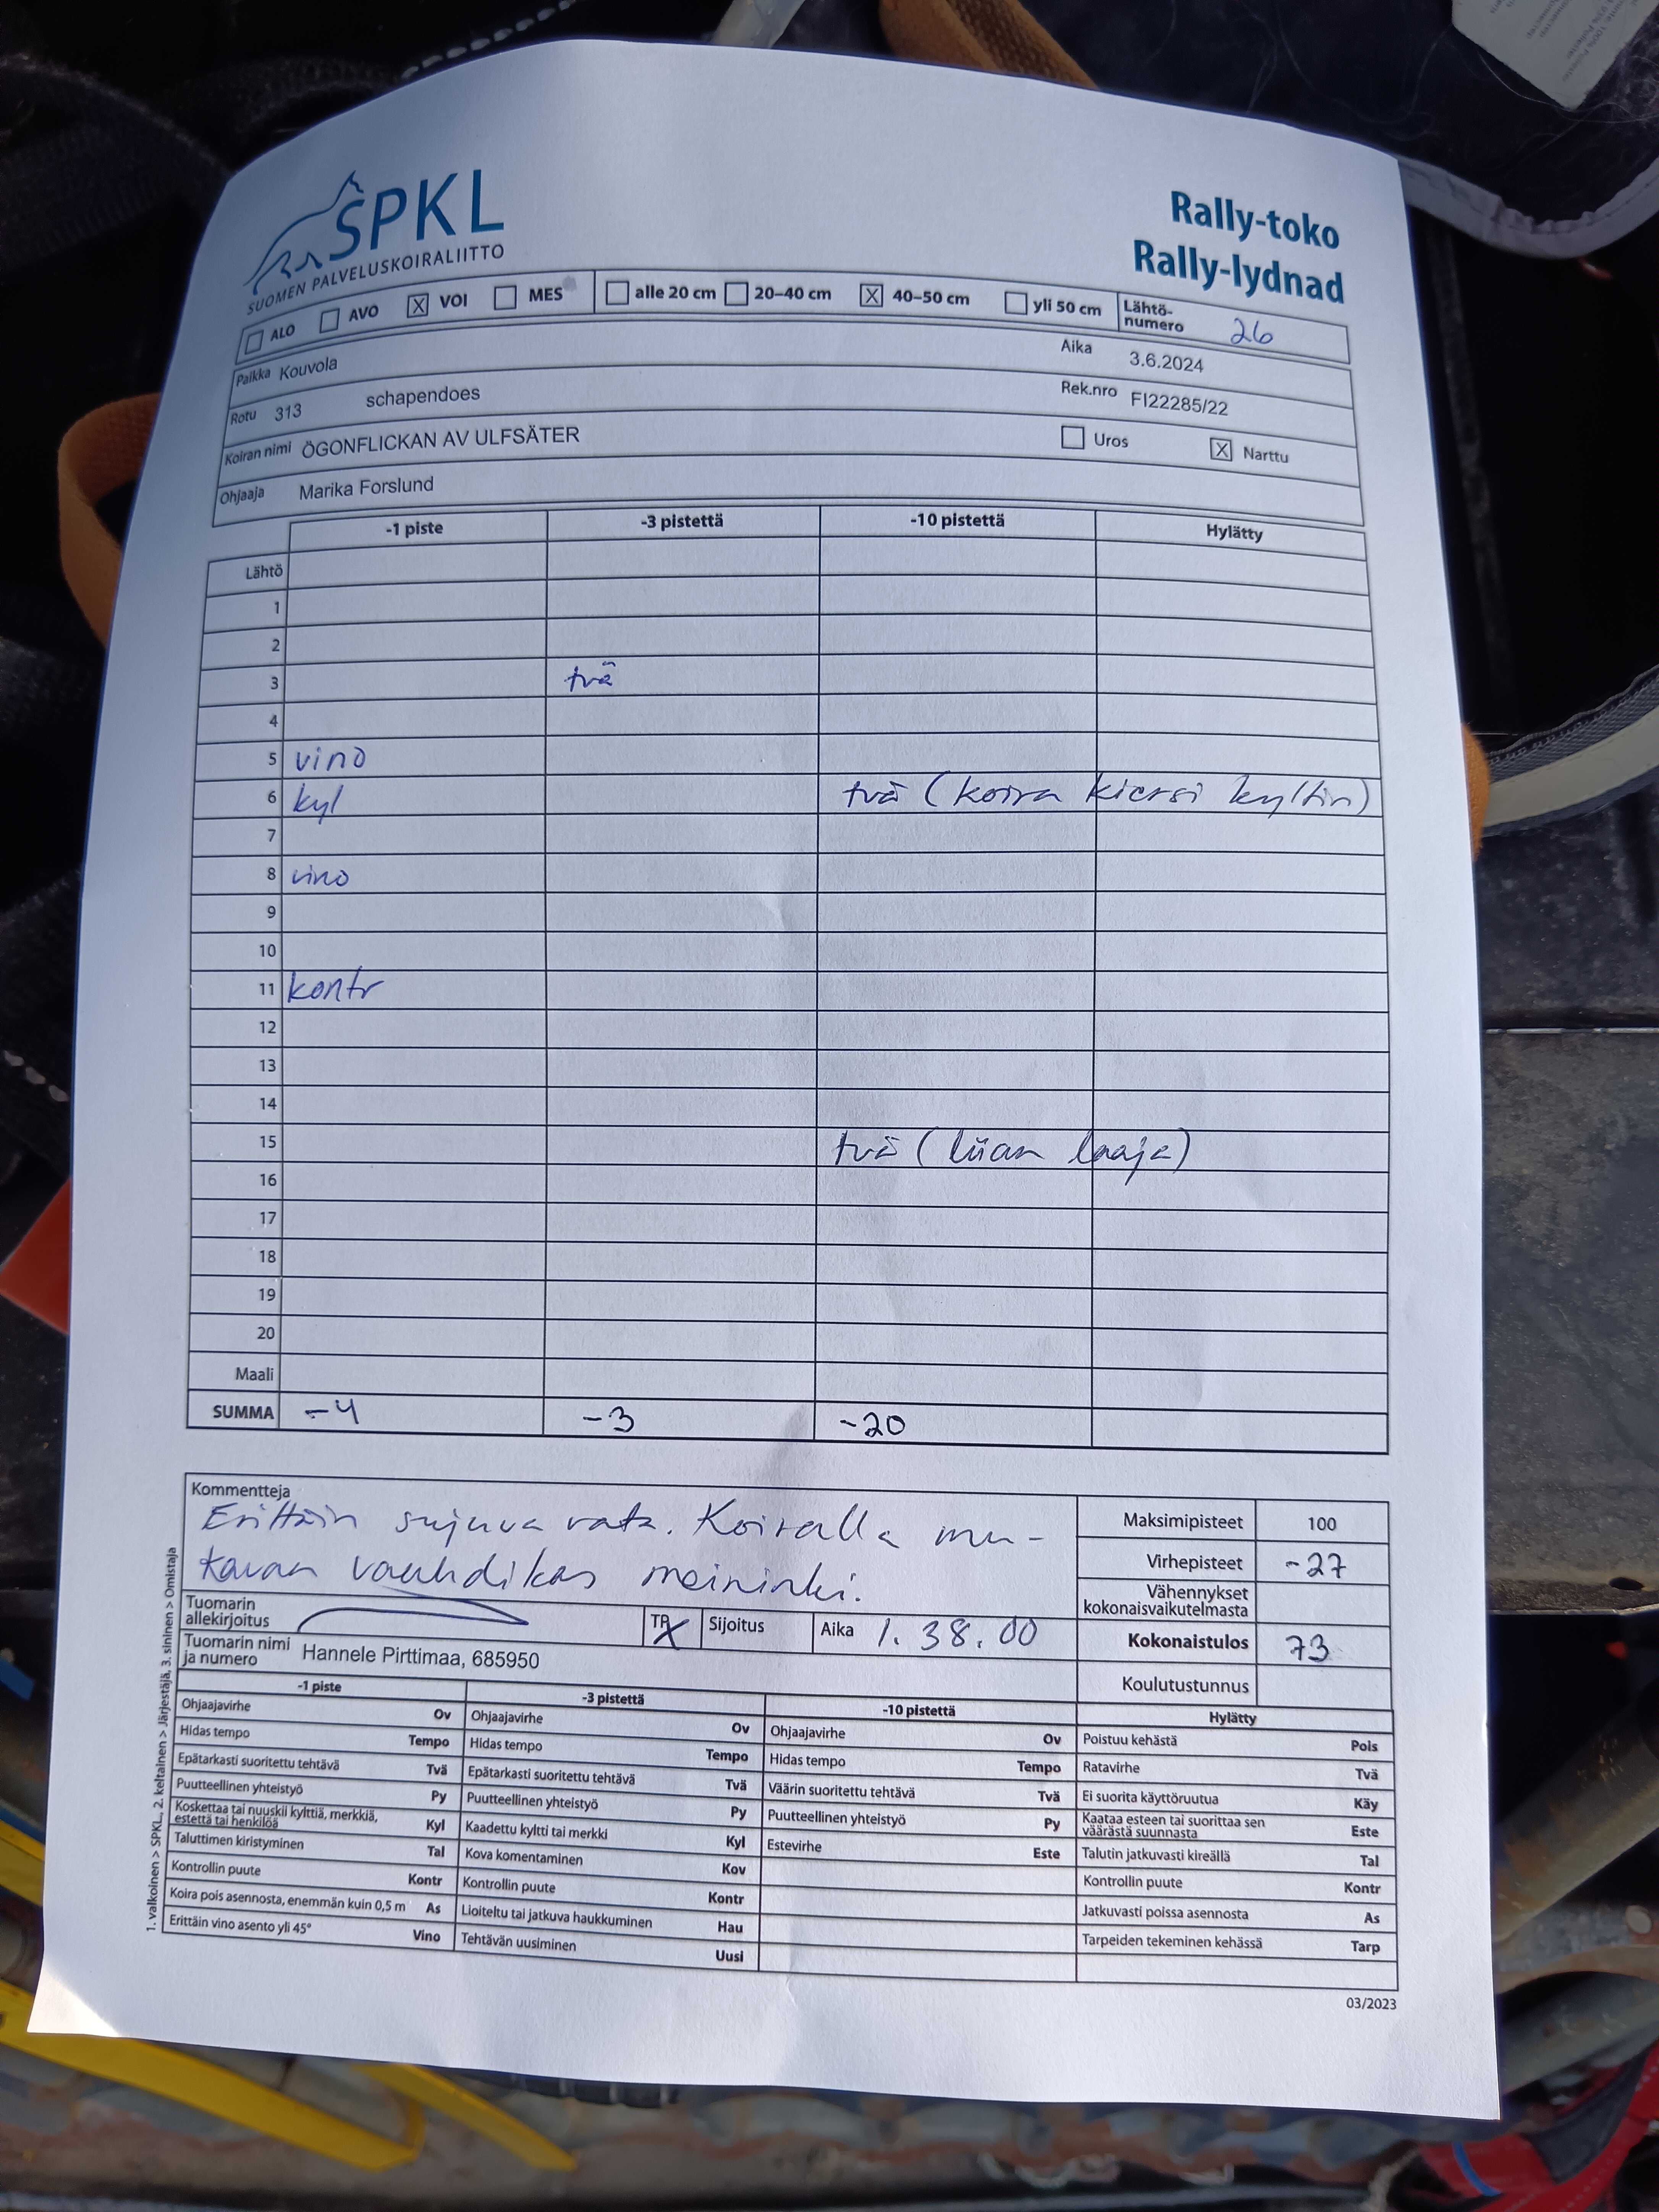 SPKL
SUOMEN PALVELUSKOIRALIITTO
Rally-toko
Rally-lydnad
ALO AVO X VOI MES alle 20 cm 20–40 cm X 40–50 cm yli 50 cm Lähtö-numero 26
Paikka Kouvola Aika 3.6.2024
Rotu 313 schapendoes Rek.nro FI22285/22
Koiran nimi ÖGONFLICKAN AV ULFSÄTER Uros X Narttu
Ohjaaja Marika Forslund
-1 piste -3 pistettä -10 pistettä Hylätty
Lähtö
1
2
3 tvä
4
5 vino
6 kyl tvä (koira kiersi kyltin)
7
8 vino
9
10
11 kontr
12
13
14
15 tvä (liian laaja)
16
17
18
19
20
Maali
SUMMA -4 -3 -20
Kommentteja
Erittäin sujuva rata. Koiralla mu-
kavan vauhdikas meininki.
Maksimipisteet 100
Virhepisteet -27
Vähennykset
kokonaisvaikutelmasta
Kokonaistulos 73
Koulutustunnus
Tuomarin
allekirjoitus
Sijoitus Aika 1.38.00
Tuomarin nimi
ja numero Hannele Pirttimaa, 685950
-1 piste -3 pistettä -10 pistettä Hylätty
Ohjaajavirhe Ov Ohjaajavirhe Ov Ohjaajavirhe Ov Poistuu kehästä Pois
Hidas tempo Tempo Hidas tempo Tempo Hidas tempo Tempo Ratavirhe Tvä
Epätarkasti suoritettu tehtävä Tvä Epätarkasti suoritettu tehtävä Tvä Väärin suoritettu tehtävä Tvä Ei suorita käyttöruutua Käy
Puutteellinen yhteistyö Py Puutteellinen yhteistyö Py Puutteellinen yhteistyö Py Kaataa esteen tai suorittaa sen väärästä suunnasta Este
Koskettaa tai nuuskii kylttiä, merkkiä, estettä tai henkilöä Kyl Kaadettu kyltti tai merkki Kyl Estevirhe Este Talutin jatkuvasti kireällä Tal
Taluttimen kiristyminen Tal Kova komentaminen Kov Kontrollin puute Kontr
Kontrollin puute Kontr Kontrollin puute Kontr Jatkuvasti poissa asennosta As
Koira pois asennosta, enemmän kuin 0,5 m As Lioiteltu tai jatkuva haukkuminen Hau Tarpeiden tekeminen kehässä Tarp
Erittäin vino asento yli 45° Vino Tehtävän uusiminen Uusi
03/2023
1. valkoinen > SPKL, 2. keltainen > Järjestäjä, 3. sininen > Omistaja